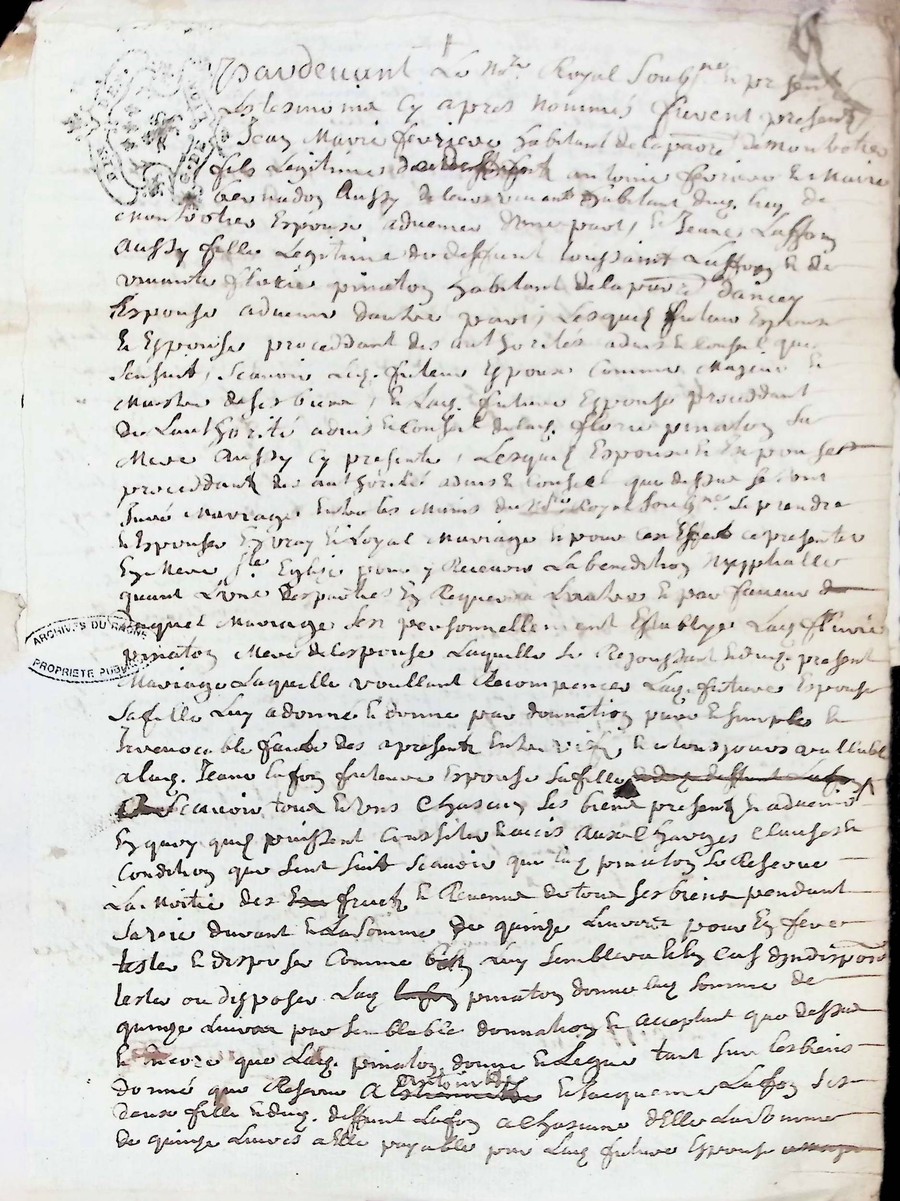 Pardevant Le No.re Royal Soub.né et present
Les tesmoins Cy apres Nommés furent presents
Jean Marie fevriere habitant de la paroe de Monbotier
fils Legitime antoine fevriere et Marie
bernadon Aussy de leur vivant habitant dud. lieu de
Monbotier Espoux advenir d'une part, et Jeane Laffon
Aussy fille Legitime de deffunt toussaint Laffon et de
vivante fleurie pinaton habitant de la paroe d'ancey
Espouse advenir d'autre part, Lesquels futurs Espoux
et Espouse proceddant des authorités advis et Conseil que
sensuit, scavoir led. futeur Espoux Comme Majeur et
Maistre de ses biens, et Lad. future Espouse proceddant
de Lauthorité advis et Conseil de lad. florie pinaton Sa
Mere Aussy Cy presente, Lesquels Espoux et Espouse
proceddant des authorités advis et Conseil que dessus se sont
Juré Mariage Entre les Mains du No.re Royal Soub.né se prendre
et Espouser En vray et Loyal Mariage et pour cest Effet ce presenter
En Mere S.te Eglise pour y Recevoir La benediction Nupthialle
quant L'une des parties En Requerra Lautre et par faveur de
Laquel Mariage s'est personnellement Establye Lad. fleurie
pinaton Mere de l'espouse Laquelle se Rejouissant dud. present
Mariage Laquelle voullant Recompencer Lad. future Espouse
sa fille Luy a donné et donne par donnation pure et simple et
irrevocable faite des apresent Entre vifs et a tousjours vallable
a lad. Jeane lafon future Espouse sa fille
scavoir tous et uns Chascun ses biens presents et advenir
En quoy quils puissent Consister et aux Charges Clauses et
Condition que sent suit scavoir que lad. pinaton se Reserve
La Moitié des fruits et Revenus de tous ses biens pendant
sa vie durant et La somme de quinze Livres pour En faire
tester et disposer Comme bon Luy semblera et En Cas d'y
tester ou disposer Lad. pinaton donne lad. somme de
quinze Livres par semblable donnation et acceptant que dessus
et Encore que Lad. pinaton donne et Legue tant sur les biens
donné que Reserve A Antoinette et Jacqueme Laffon ses
deux fille et dud. deffunt Lafon a Chascune d'Elle La somme
de quinze Livres a Elle payable par Lad. future Espouse
ARCHIVES DU RHONE
PROPRIETE PUBLIQUE